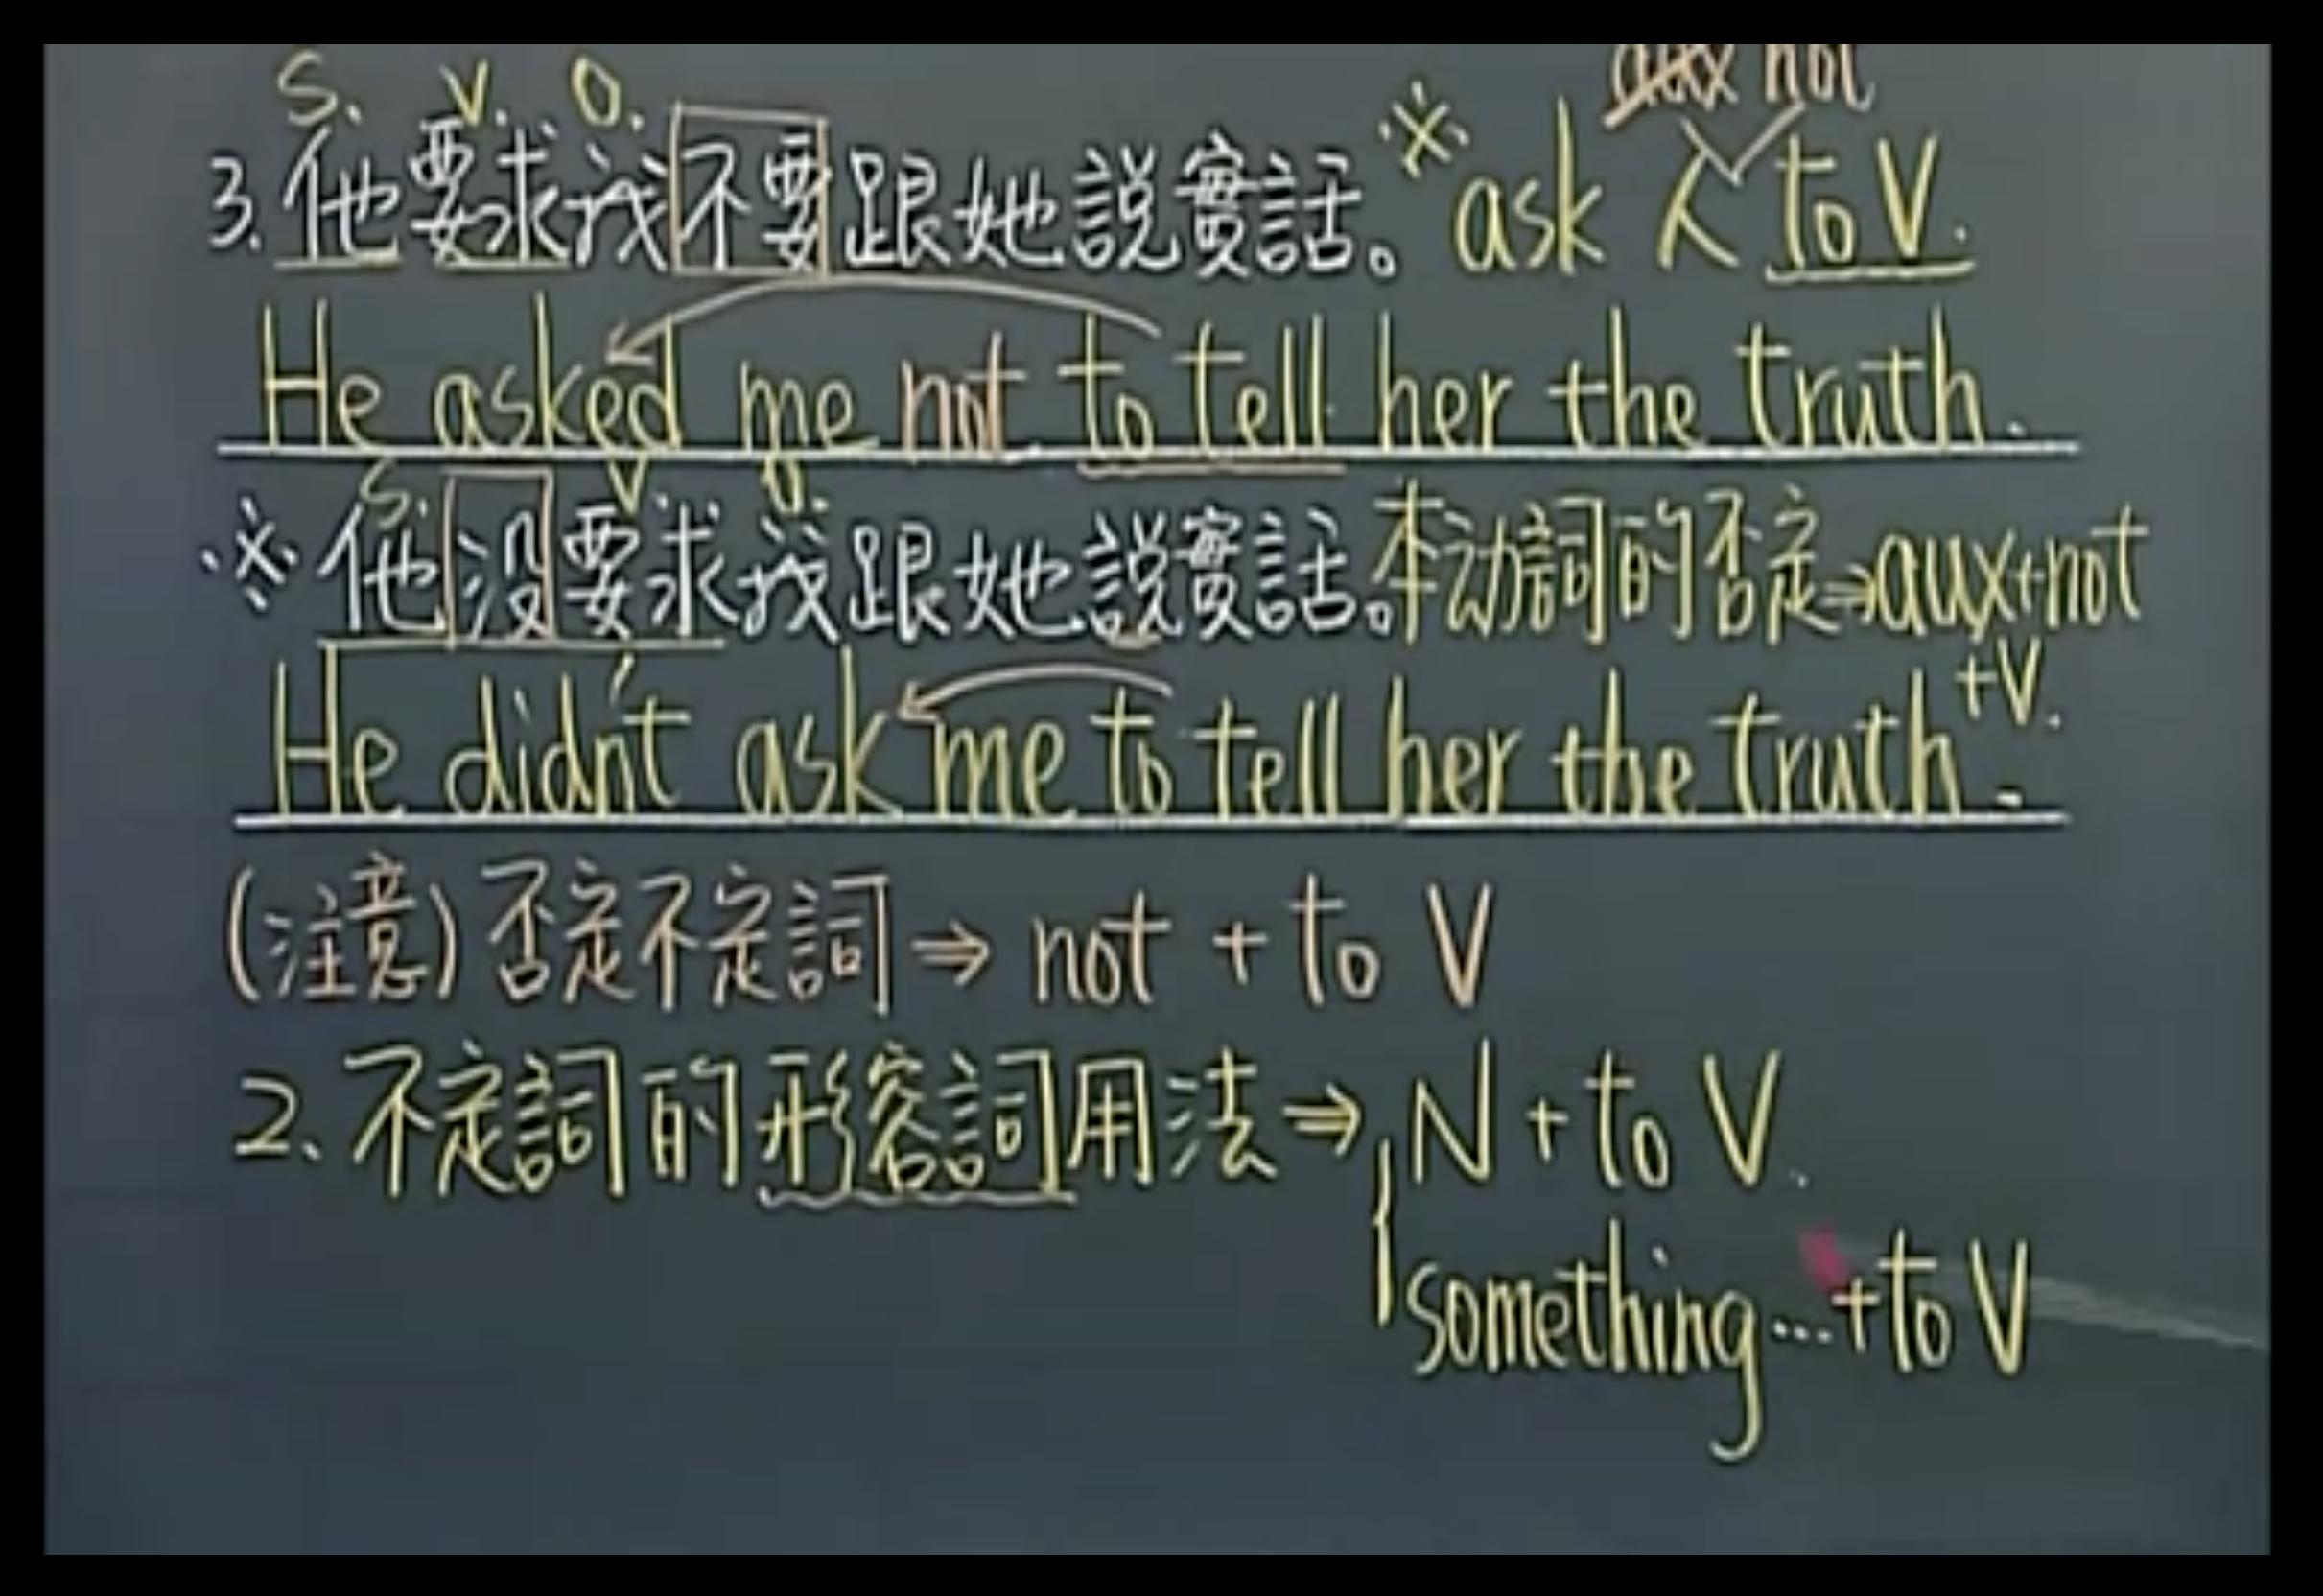 aux not
S. V. O.
3. 他要求我不要跟她説實話。※ask 人 to V.
He asked me not to tell her the truth.
S. V. O.
※他没要求我跟她説實話。本动詞的否定⇒aux+not
+V.
He didn't ask me to tell her the truth.
(注意)否定不定詞⇒ not + to V
2、不定詞的形容詞用法⇒ N + to V.
something…+to V